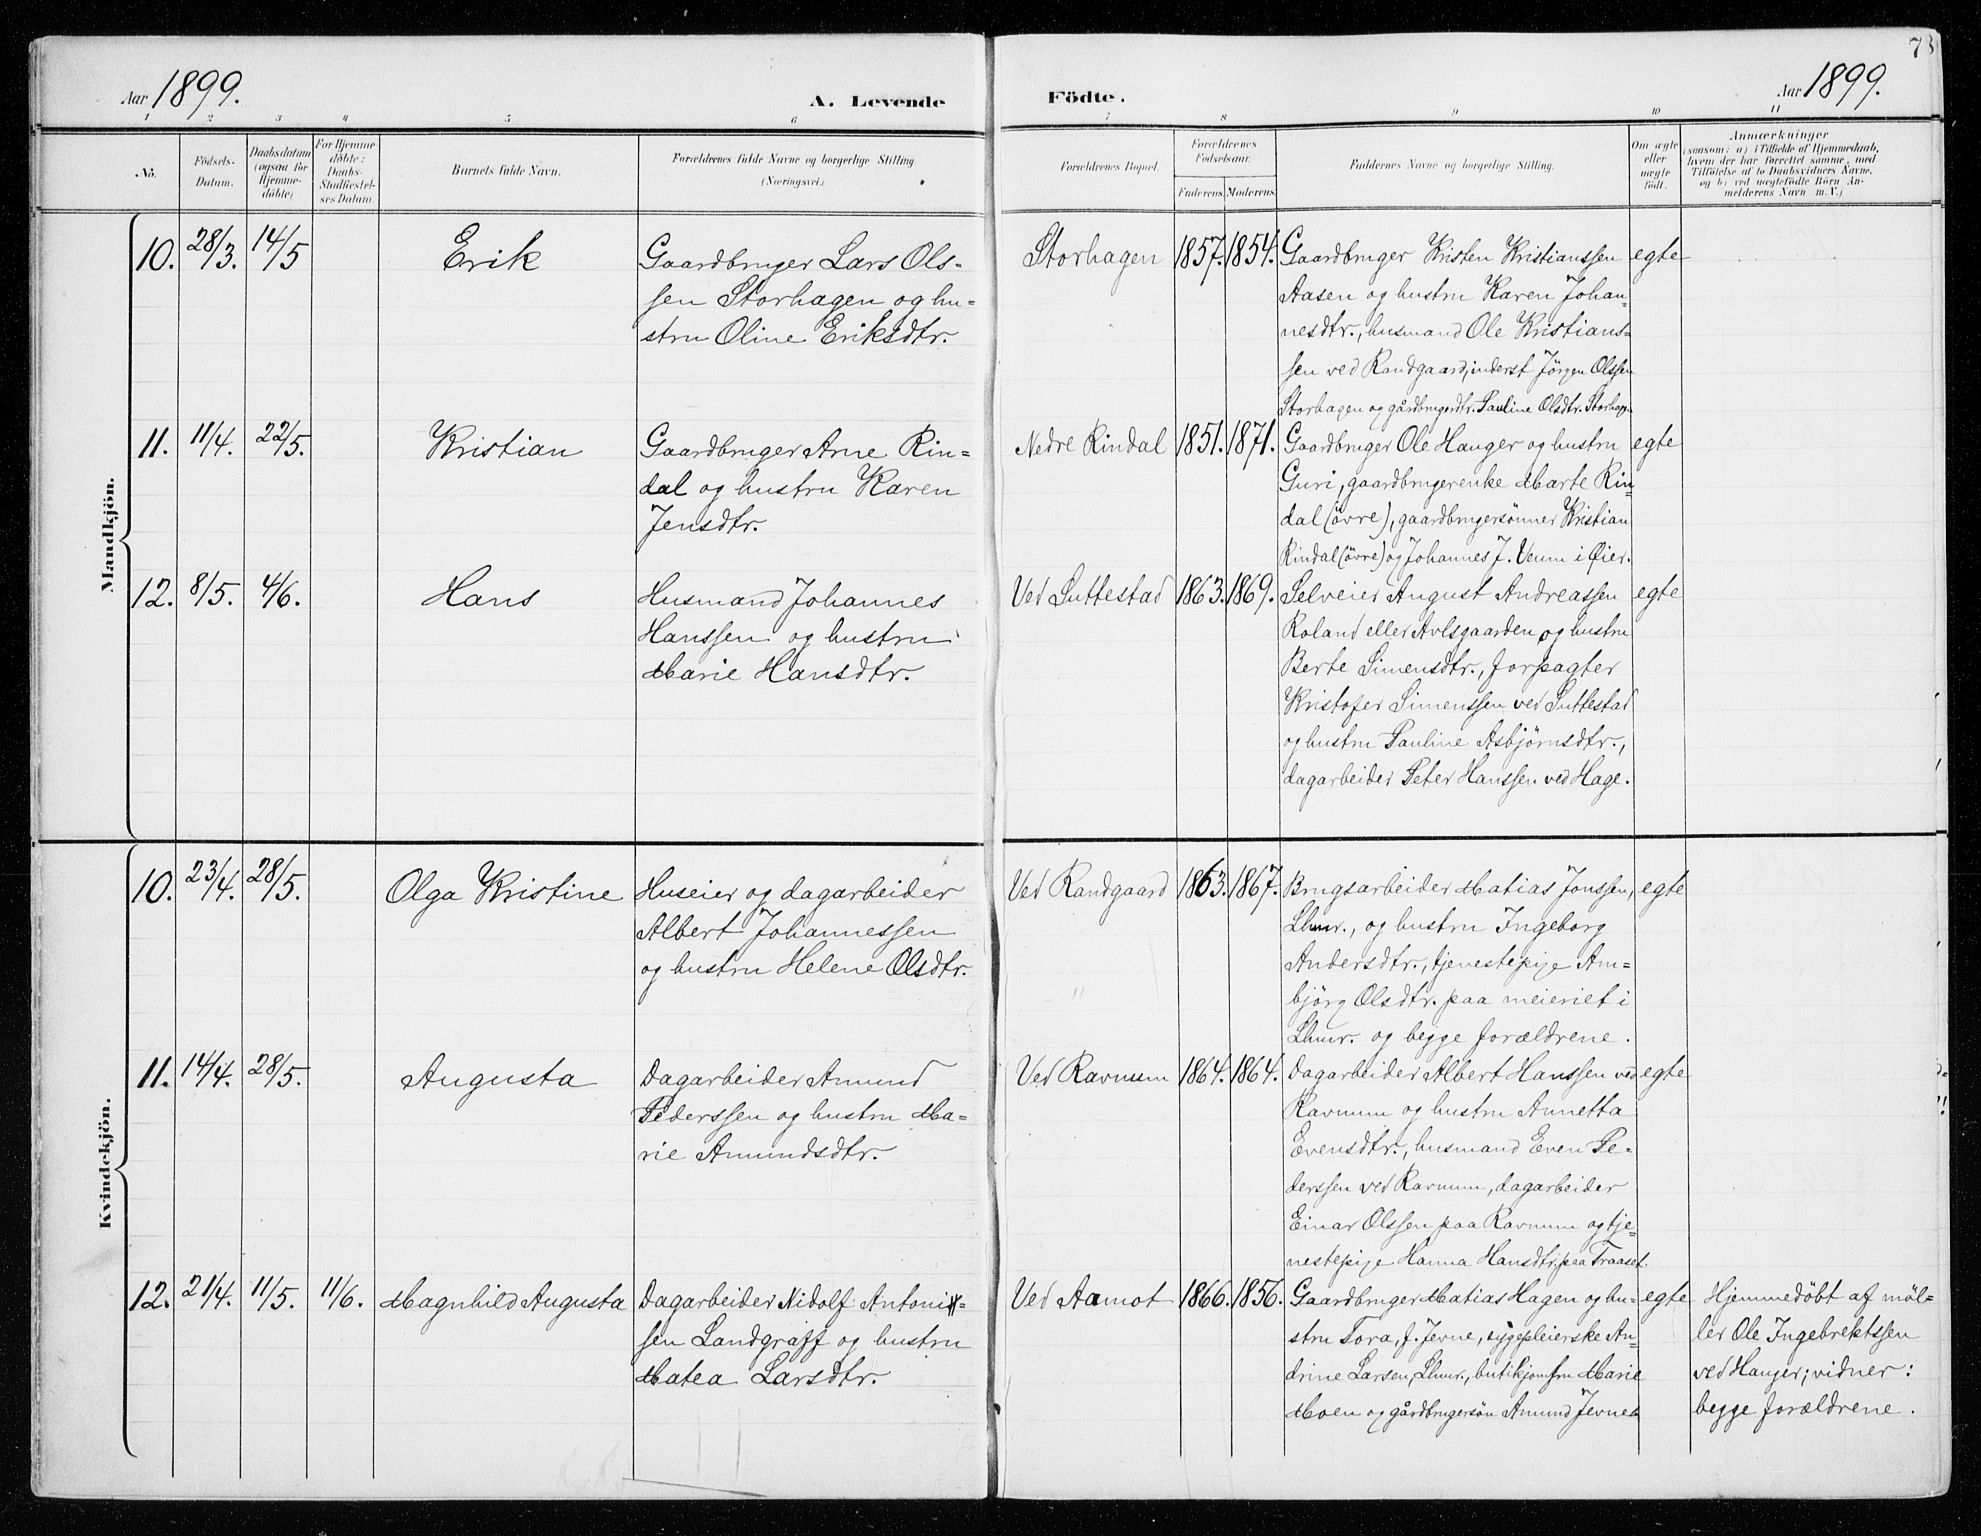 73
Aar 1899.
A. Levende
Födte.
Aar 1899.
1 2 3 4 5 6 7 8 9 10 11
No.
Födsels-
Datum.
Daabsdatum
(ogsaa for
Hjemme-
döbte)
For Hjemme-
döbte:
Daabs-
Stadfæstel-
ses Datum.
Barnets fulde Navn.
Forældrenes fulde Navne og borgerlige Stilling
(Næringsvei.)
Forældrenes Bopæl.
Forældrenes
Födselsaar.
Faderens. Moderens.
Faddernes Navne og borgerlige Stilling.
Om ægte
eller
uægte
födt.
Anmærkninger
(saasom: a) i Tilfælde af Hjemmedaab,
hvem der har forrettet samme, med
Tilföielse af to Daabsvidners Navne,
og b) ved uægtefödte Börn An-
melderens Navn m. V.)
Mandkjön.
10. 28/3. 14/5 Erik
Gaardbruger Lars Ols-
sen Storhagen og hu-
stru Oline Eriksdtr.
Storhagen 1857. 1854.
Gaardbruger Kristen Kristianssen
Aasen og hustru Karen Johan-
nesdtr., husmand Ole Kristians-
sen ved Randgaard, inderst Jörgen Olssen
Storhagen og gårdbrugerdtr. Pauline Olsdtr. Storhagen
egte
11. 11/4. 22/5. Kristian
Gaardbruger Arne Rin-
dal og hustru Karen
Jensdtr.
Nedre Rindal 1851. 1871.
Gaardbruger Ole Hauger og hustru
Guri, gaardbrugerenke Marte Rin-
dal (övre), gaardbrugersönner Kristian
Rindal (övre) og Johannes J. Venm i Øier.
egte
12. 8/5. 4/6. Hans
Husmand Johannes
Hanssen og hustru
Marie Hansdtr.
Ved Suttestad 1863. 1869.
Selveier August Andreassen
Roland eller Avlsgaarden og hustru
Berte Simensdtr., forpagter
Kristofer Simenssen ved Suttestad
og hustru Pauline Asbjörnsdtr.,
dagarbeider Peter Hanssen ved Hage.
egte
Kvindekjön.
10. 23/4. 28/5. Olga Kristine
Huseier og dagarbeider
Albert Johannessen
og hustru Helene Olsdtr.
Ved Randgaard 1863. 1867.
Brugsarbeider Matias Jonssen,
Lhmr., og hustru Ingeborg
Andersdtr., tjenestepige Am-
björg Olsdtr. paa meieriet i
Lhmr. og begge forældrene.
egte
11. 14/4. 28/5. Augusta
Dagarbeider Amund
Pederssen og hustru Ma-
rie Amundsdtr.
Ved Ravnum 1864. 1864.
Dagarbeider Albert Hanssen ved
Ravnum og hustru Annetta
Evensdtr., husmand Even Pe-
derssen ved Ravnum, dagarbeider
Einar Olssen paa Ravnum og tje-
nestepige Hanna Hansdtr. paa Traaset.
egte
12. 21/4. 11/5. 11/6. Magnhild Augusta
Dagarbeider Nidolf Antoni-
sen Landgraff og hustru
Matea Larsdtr.
Ved Aamot 1866. 1856.
Gaardbruger Matias Hagen og hu-
stru Tora, f. Jevne, sygepleierske An-
drine Larsen, Lhmr., butikjomfru Marie
Moen og gårdbrugersön Amund Jevne
egte
Hjemmedöbt af möl-
ler Ole Ingebrektssen
ved Hauger; vidner:
begge forældrene.